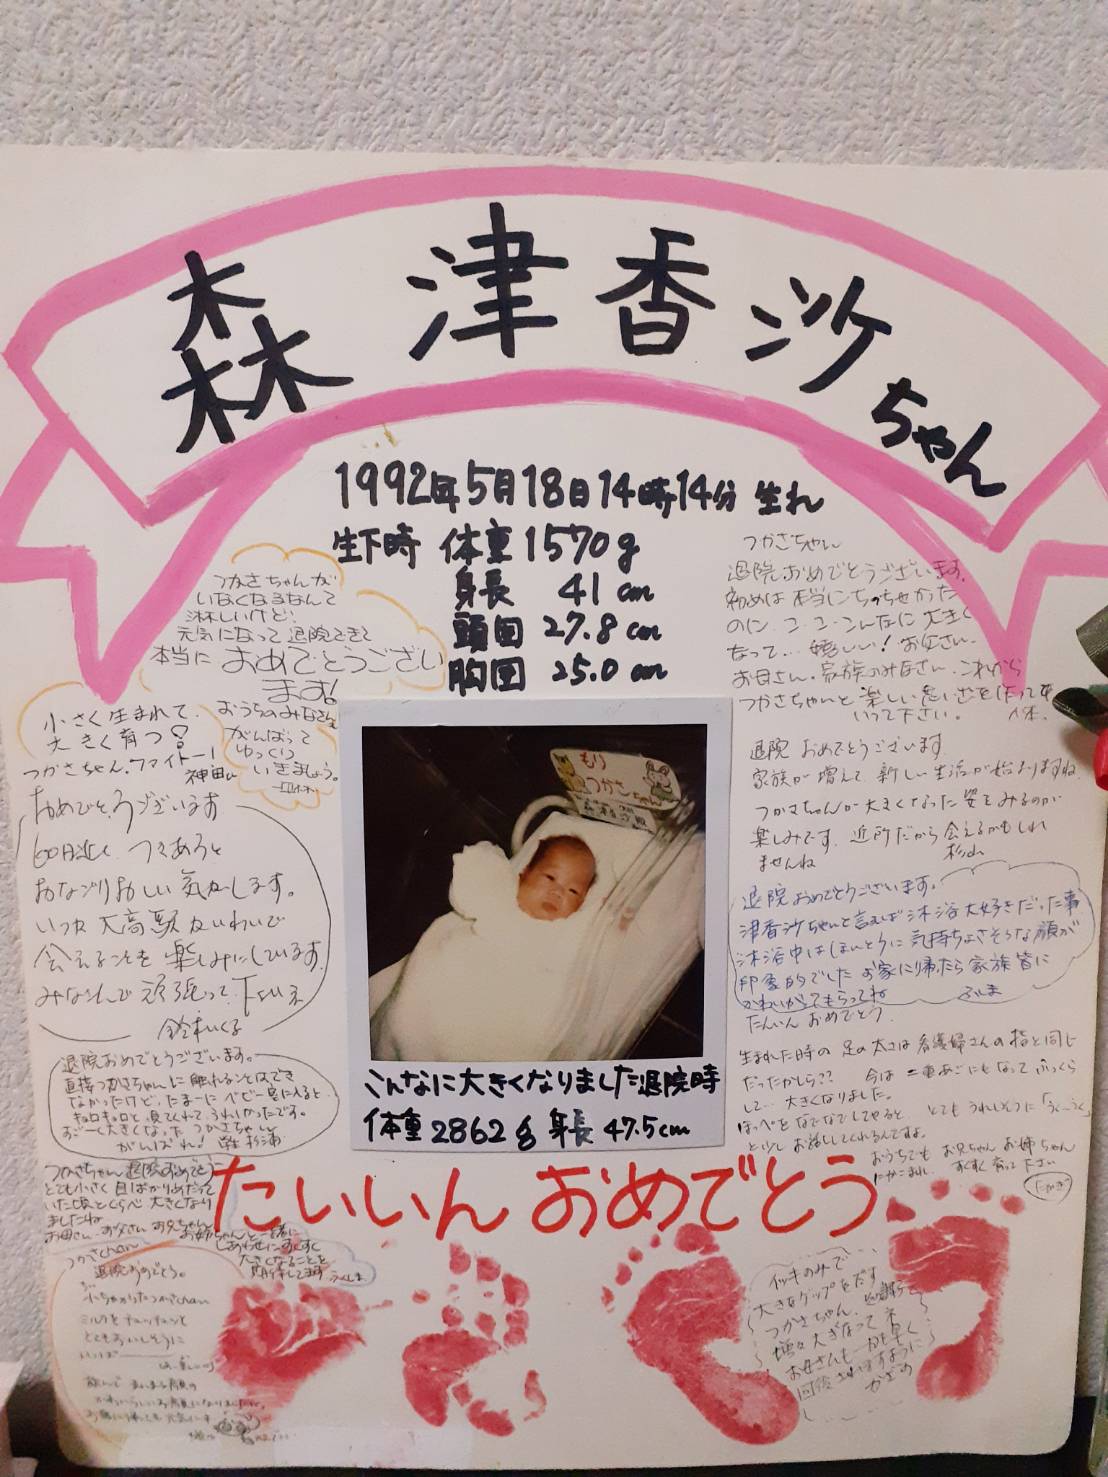 森 津香沙ちゃん
1992年5月18日14時14分 生れ
生下時 体重1570g
身長 41cm
頭囲 27.8cm
胸囲 25.0cm
つかさちゃんが
いなくなるなんて
淋しいけど…
元気になって退院できて
本当に おめでとうござい
ます!
小さく生まれて、
大きく育つ!
つかさちゃん、ファイトー!
神田
おうちのみなさん
がんばって
ゆっくり
いきましょう。
おめでとうございます
おなごりおしい気がします。
いつか 大高駅かいわいで
会えることを楽しみにしています。
みなさんで頑張って下さいネ
退院おめでとうございます。
直接つかさちゃんに触れることはでき
なかったけど、たまーにベビー室に入ると
キョロキョロと見てくれて、うれしかったです。
すごーく大きくなった つかさちゃん
がんばれ! 杉浦
つかさちゃん 退院おめでとう
とても小さく目ばかりめだって
いた頃とくらべ 大きくなり
ましたね
お母さん、お父さん お兄ちゃん お姉ちゃんと一緒に
しあわせにすくすく
大きくなることを
期待してます
つかさchan
退院おめでとう。
小ちゃかったつかさchan
ミルクを チュッチュッと
とてもおいしそうに
もり
つかさちゃん
こんなに大きくなりました退院時
体重 2862g 身長 47.5cm
つかさちゃん
退院おめでとうございます。
初めは本当にちっちゃかった
のに、コ・コ・こんなに大きく
なって… 嬉しい! お父さん、
お母さん、家族のみなさん、これから
つかさちゃんと楽しい思い出を作って
いって下さい。
退院 おめでとうございます。
家族が増えて 新しい生活が始まりますね
つかさちゃんが大きくなった姿をみるのが
楽しみです。近所だから会えるかもしれ
ませんね
退院おめでとうございます。
津香沙ちゃんと言えば沐浴大好きだった事
沐浴中はほんとうに気持ちよさそうな顔が
印象的でした お家に帰ったら家族皆に
かわいがってもらってね
たいいん おめでとう
生まれた時の 足の太さは看護婦さんの指と同じ
だったかしら?? 今は 二重あごにもなって ふっくら
して… 大きくなりました。
ほっぺをなでなでしてやると、とてもうれしそうに「うくーうくー」
と少しお話ししてくれるんですよ。
おうちでも お兄ちゃん お姉ちゃん
すくすく育って下さい
たいいん おめでとう
イッキのみで
大きなゲップをだす
つかさちゃん、
増々大きくなってネ
お母さんも一日も早く
回復されますように